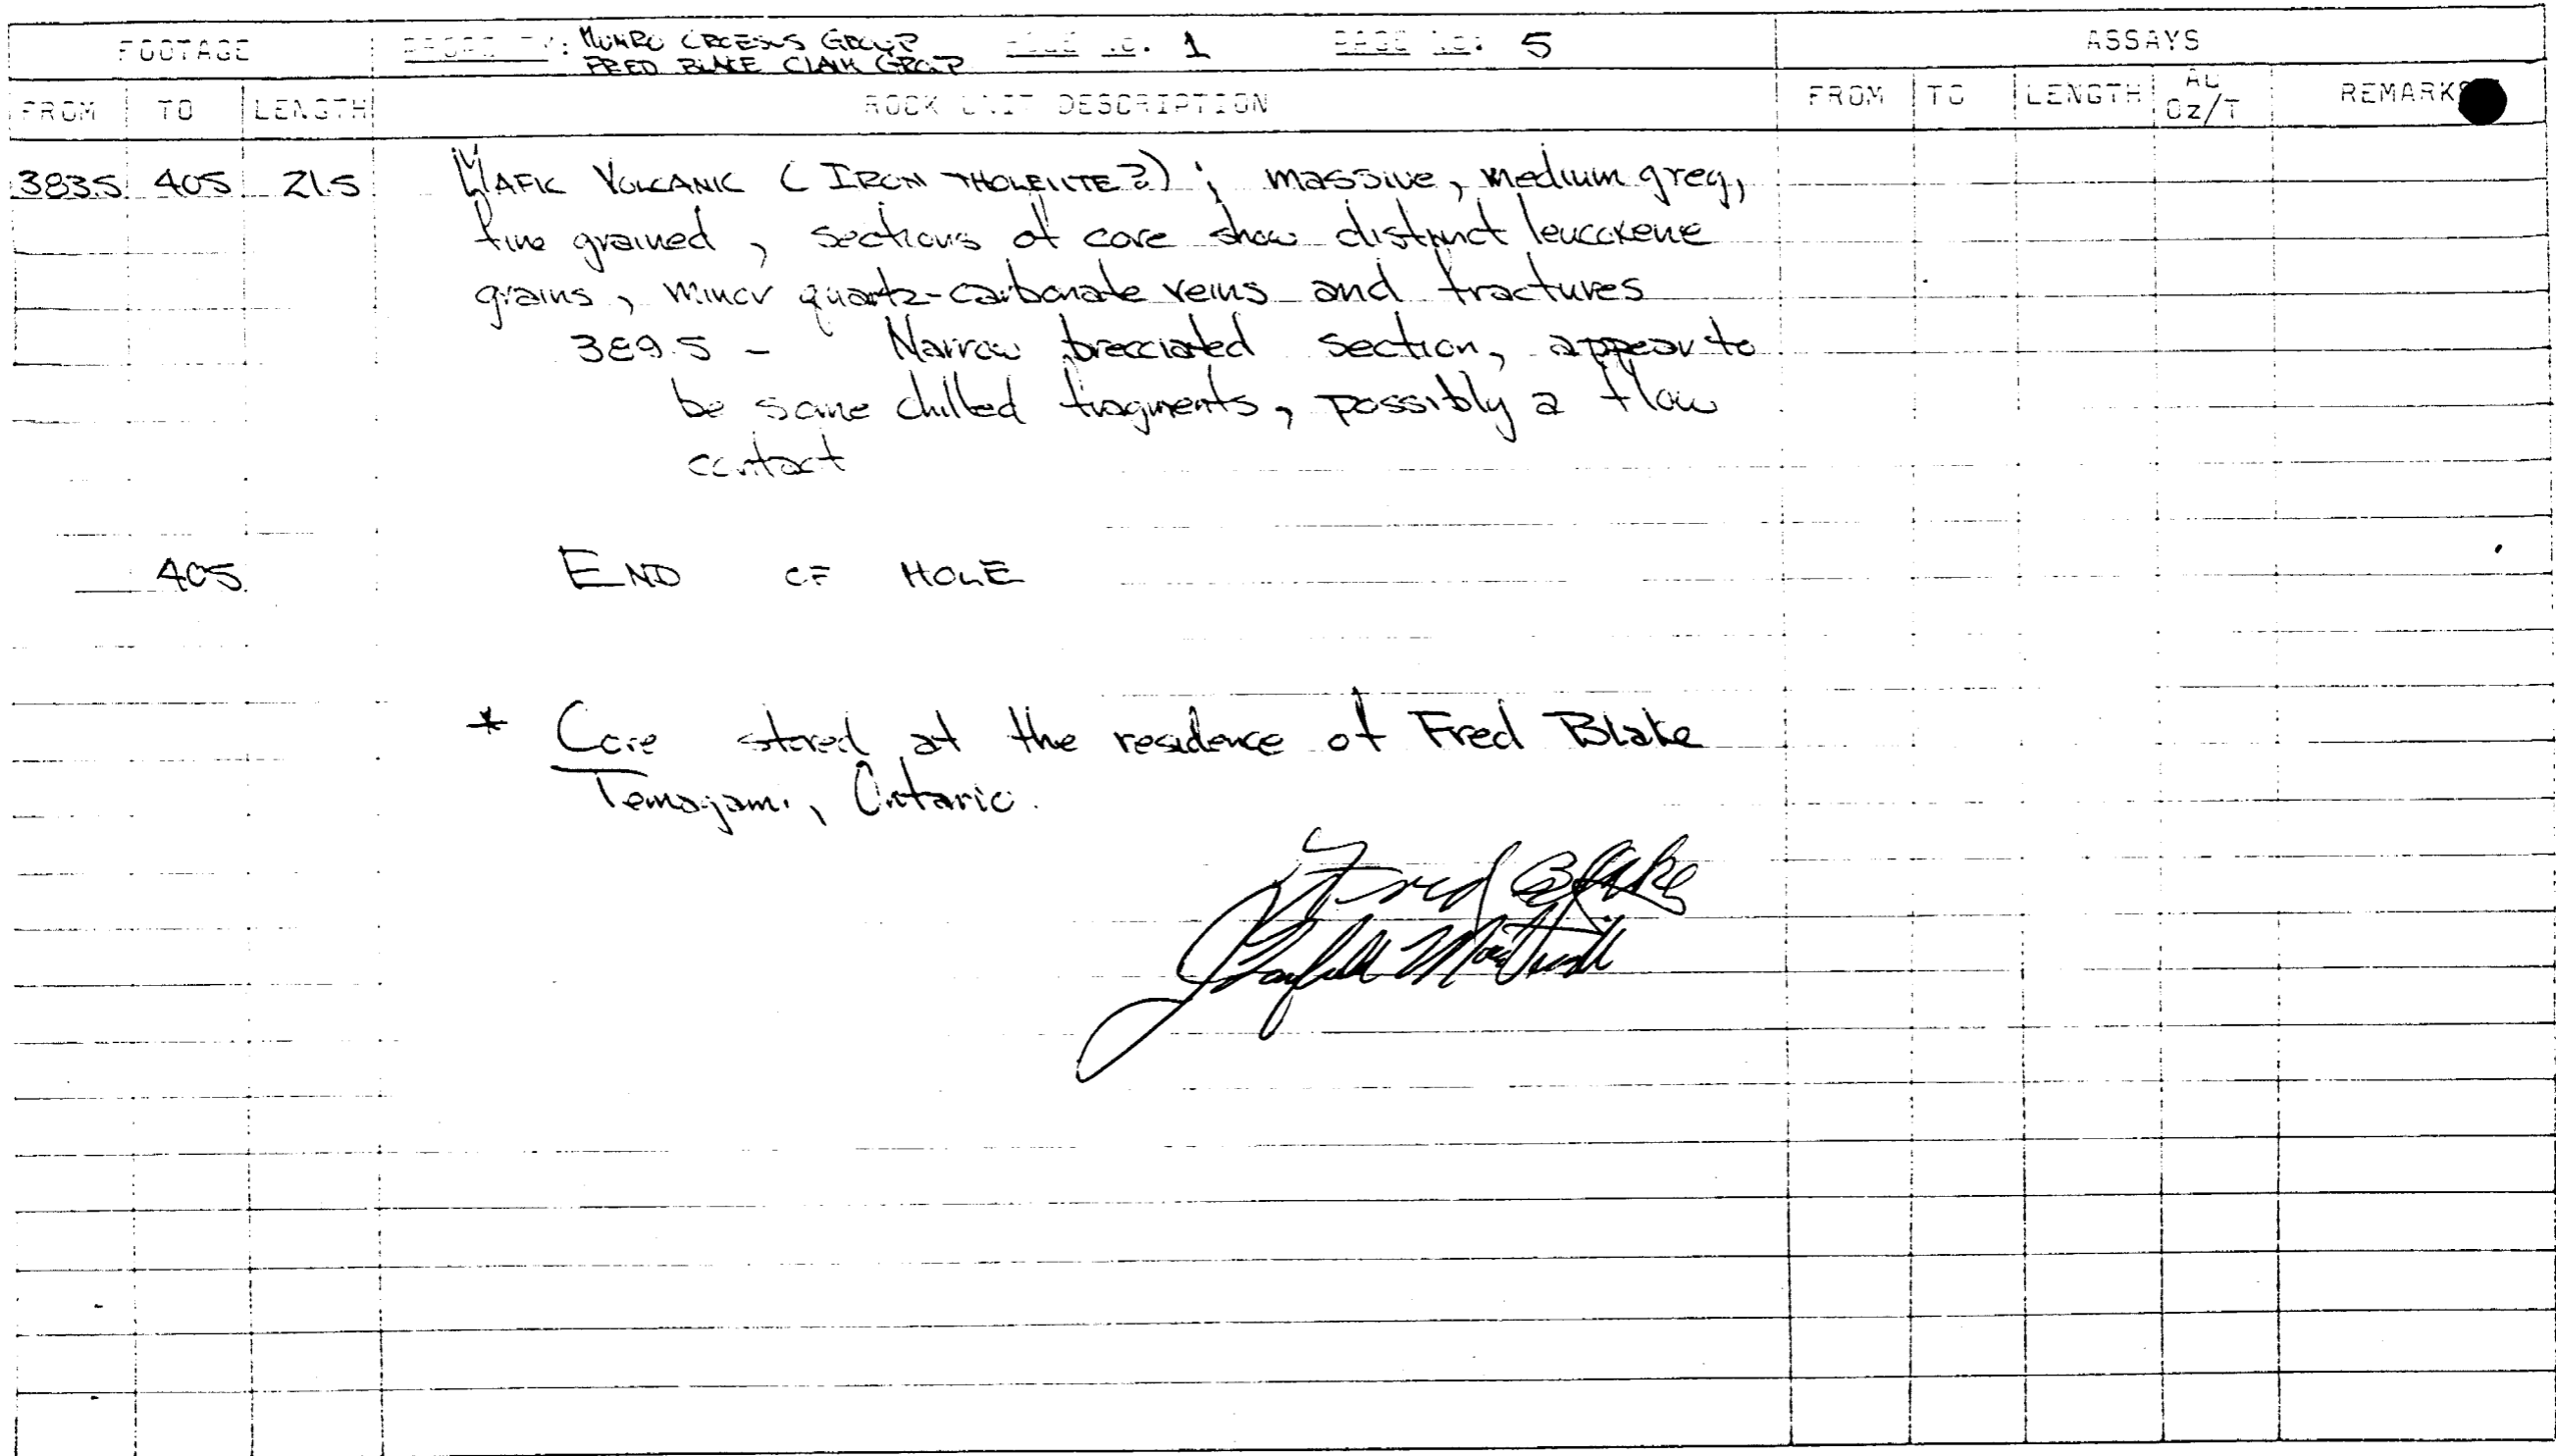 FOOTAGE PROPERTY: MUNRO CROESUS GROUP HOLE NO. 1 PAGE NO: 5 ASSAYS
FRED BLAKE CLAIM GROUP
FROM TO LENGTH ROCK UNIT DESCRIPTION FROM TO LENGTH AU Oz/T REMARKS
383.5 405 21.5 MAFIC VOLCANIC (IRON THOLEIITE?); massive, medium grey,
fine grained, sections of core show distinct leucoxene
grains, minor quartz-carbonate veins and fractures
389.5 - Narrow brecciated section, appear to
be some chilled fragments, possibly a flow
contact
405 END OF HOLE
* Core stored at the residence of Fred Blake
Temagami, Ontario.
Fred Blake